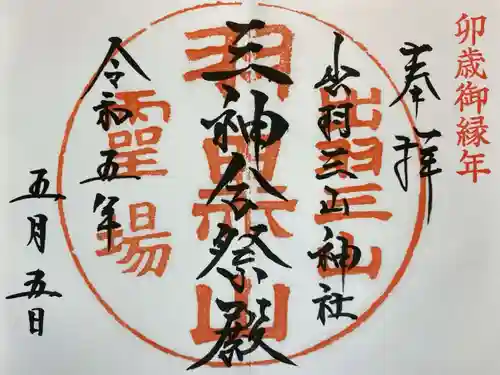 卯歳御縁年
奉拝
出羽三山神社
三神合祭殿
令和五年
五月五日
出羽三山
羽黒山
霊場